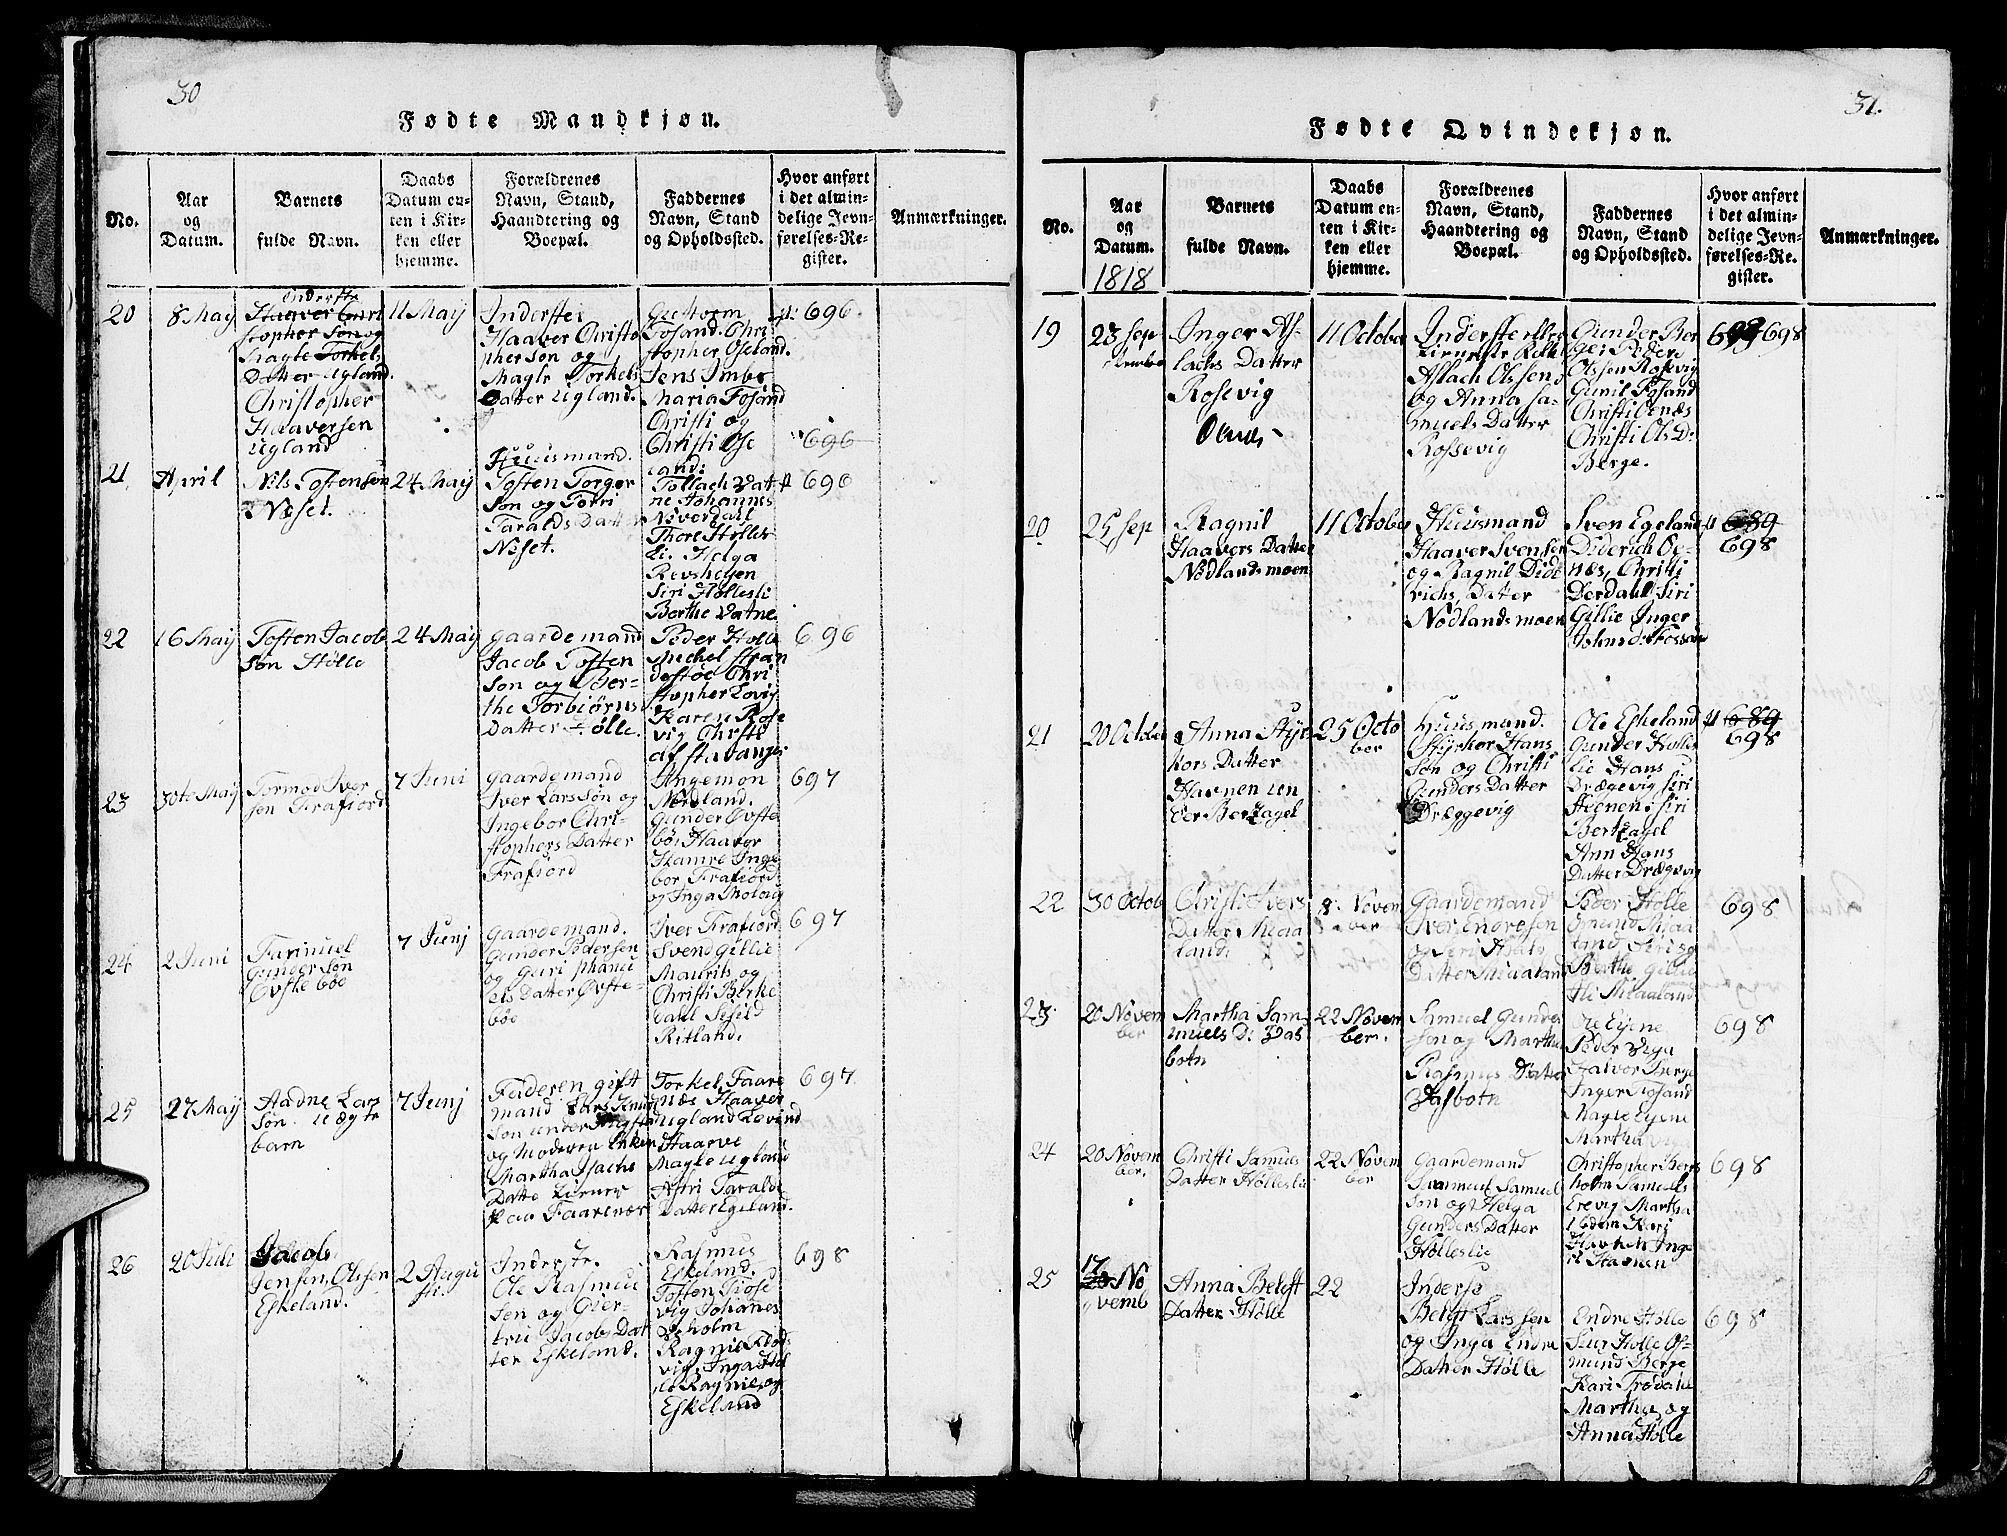 30
Fødte Mandkjøn.
No.
Aar
og
Datum.
Barnets
fulde Navn.
Daabs
Datum en-
ten i Kir-
ken eller
hjemme.
Forældrenes
Navn, Stand,
Haandtering og
Boepæl.
Faddernes
Navn, Stand
og Opholdssted.
Hvor anført
i det almin-
delige Jevn-
førelses-Re-
gister.
Anmærkninger.
20
8 May
Haaver Chri
stopher Søn og
Magle Torkels
Datter Ugland.
Christopher
Haaversen
Ugland
11 May
Inderster
Haaver Christo
pher søn og
Magle Torkels
Datter Ugland.
Fosand. Chri
stopher Oseland.
Jens Imbs
Maria Fosand
Christi og
Christi Ose
land:
696
696
21
April
Nils Tostensøn
Neset.
24 May
Huusmand.
Tosten Torger
Søn og Torri
Taralds Datter
Neset.
Tollach Vat
ne Johannes
Nøverdall
Thore Hølles
li. Helga
Revsheyen
Siri Hollesli
Berthe Vatne.
696
22
16 May
Tosten Jacob
søn Hølle
24 May
gaardemand
Jacob Tosten
Søn og Ber-
the Torbiørns
Datter Hølle.
Peder Holle
Michel Stran
destøe Chri
stopher Lovig
Karen Rose
vig Christi
af Stavanger
696
23
30te May
Tormod Iver
sen Frafiord
7 Juni
gaardemand
Iver Larssøn og
Ingebor Chri-
stophers Datter
Frafiord
Nedland.
Gunder Øvste
bø: Haaver
Hamre Inge
bor Frafiord.
697
24
2 Juni
Gunder søn
Øvste bøe
7 Junj
gaardemand.
Gunder Pedersen
els Datter Øvste-
bøe
Iver Frafiord
Svend Gillie
Maurits og
Christi Birke
dahl Sesild
Ritland.
697
25
27 May
Aadne Lars
Søn. uægte
barn
7 Junj
Faderen gift
mand Lars Knud
og Moderen Enken
Martha Isachs
Datte
paa Faarenæs
Torkel Faare
næs Haaver
Ugland Levind
Haarve
Magle Ugland
Astri Taralds
Datter Egeland.
697
26
20 Juli
Jacob
Jensen, Olssen
Eskeland.
2 Augu
st.
Inderste.
Ole Rasmus
Sen og Gier-
tru Jacobs Dat
ter Eskeland.
Rasmus
Eskeland.
Tosten Tiøse
vig Johanes
Leholm
Eskeland
698
31.
Fødte Qvindekjøn.
No.
Aar
og
Datum.
1818
Barnets
fulde Navn.
Daabs
Datum en-
ten i Kir-
ken eller
hjemme.
Forældrenes
Navn, Stand,
Haandtering og
Boepæl.
Faddernes
Navn, Stand
og Opholdssted.
Hvor anført
i det almin-
delige Jevn-
førelses-Re-
gister.
Anmærkninger.
19
23 Sep
tember
Inger As-
lachs Datter
Rosevig
11 October
Inderste eller
Aslach Olssen
og Anna Sa-
muels Datter
Rossevig
Gunder Ber
ge: Peder
Olssen Rosevig
Gunil Fosand
Christi Oenæs
Christi Ols D:
Berge.
698
20
25 Sep
Ragnil
Haavers Datter
Nodlandsmoen
11 October
Huusmand
Haaver Svensen
og Ragnil Dide
richs, Datter
Nodlandsmoen
Sven Egeland
Diderich Oe-
næs, Christi
Dørdahl Siri
Gillie Inger
Johns d: Fossan
689
698
21
20 October
Anna Styr
kors Datter
Havnen un
der Bertzagel
25 Octo
ber
Huusmand.
Styrkor Hans
Søn og Christi
Gunders Datter
Dræggevig
Ole Eskeland
Gunder Holles
lie Hans
Drægevig Siri
Heenen: Siri
Bertzagel
Ann Hans
Datter Drægevig
689
698
22
30 Octob
Christi Ivers
Datter Miaa
land:
8. Novem
ber
Gaardemand
Iver Endresen
og Siri Asels
Datter Miaaland
Peder Hølle
Omund Miaa
land Siri og
Berthe Gillie
Eli Miaaland
698
23
20 Novem
ber
Martha Sam
uels D: Das
botn
22 Novem
ber.
Samuel Gunder
søn og Martha
Rasmus Datter
Dasbotn
Ole Eyene
Peder Vega
Halvor Berge
Inger Fosand
Magle Eyene
Martha
698
24
20 Novem
ber.
Christi Samuels
Datter Hølleslie
22 Novem
ber
Gaardemand
Sammuel Samuel
Søn og Helga
Gunders Datter
Hølleslie
Christopher Børs
holm Samuels
Erevig Martha
Ibdem Kari
Havnen Inge
Havnen
698
25
17
No
vemb
Anna Beleft
Datter Hølle
22
Inderse
Larssen
og Inga Endre
Datter Hølle
Endre Hølle
Siur Hølle Os-
mund Berge
Kari Trødahl
Martha og
Anna Hølle
698